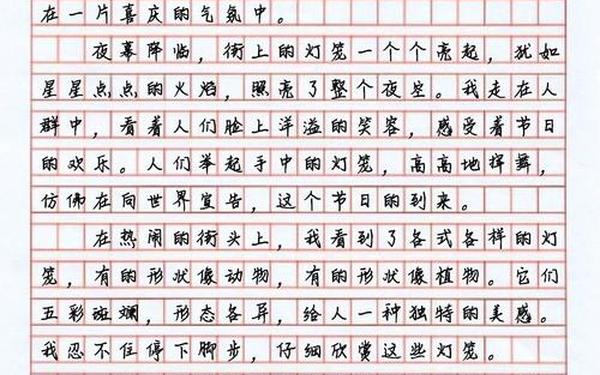 在一片喜庆的气氛中。
夜幕降临，街上的灯笼一个个亮起，犹如
星星点点的火焰，照亮了整个夜空。我走在人
群中，看着人们脸上洋溢的笑容，感受着节日
的欢乐。人们举起手中的灯笼，高高地挥舞，
仿佛在向世界宣告，这个节日的到来。
在热闹的街头上，我看到了各式各样的灯
笼，有的形状像动物，有的形状像植物。它们
五彩斑斓，形态各异，给人一种独特的美感。
我忍不住停下脚步，仔细欣赏这些灯笼。